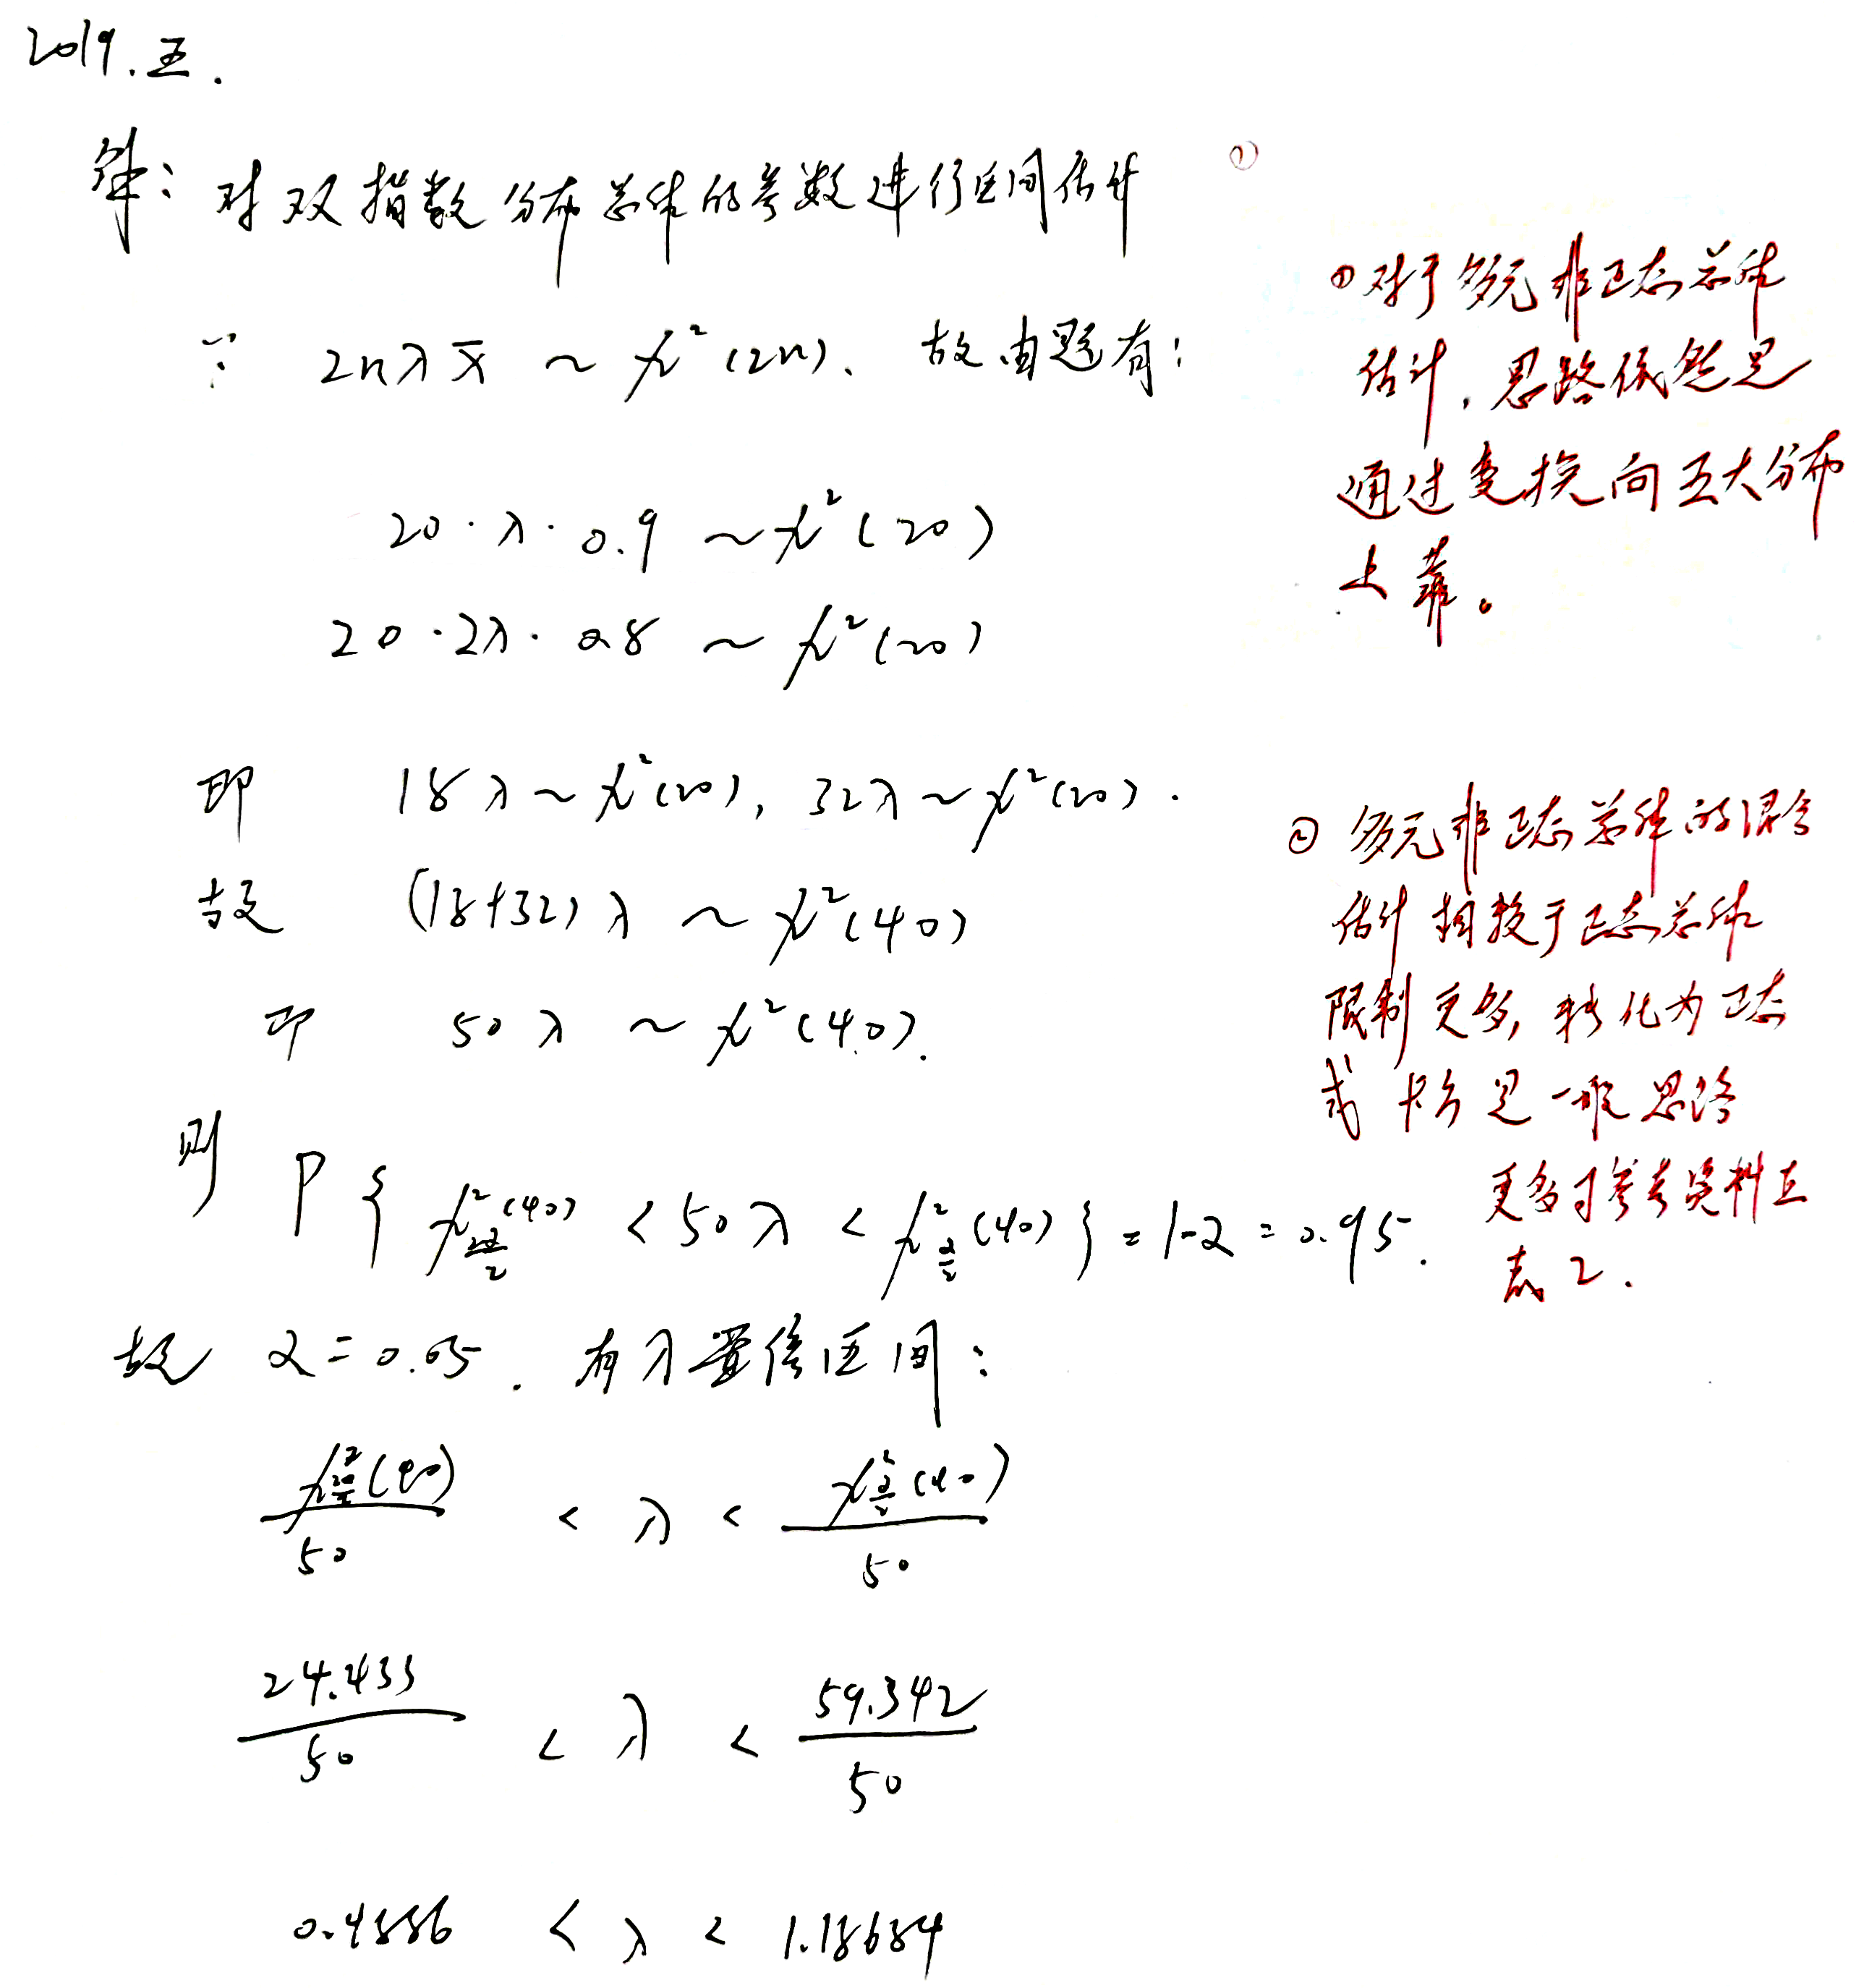 2019.五.
解：对双指数分布总体的参数进行区间估计 ①
∵ 2nλx̄ ~ χ²(2n)、故由题有：
20·λ·0.9 ~ χ²(20)
20·2λ·0.8 ~ χ²(20)
即 18λ ~ χ²(20), 32λ ~ χ²(20).
故 (18+32)λ ~ χ²(40)
即 50λ ~ χ²(40).
则 P{ χ²_{1-α/2}(40) < 50λ < χ²_{α/2}(40) } = 1-α = 0.95.
故 α = 0.05. 有λ置信区间：
χ²_{1-α/2}(40)/50 < λ < χ²_{α/2}(40)/50
24.433/50 < λ < 59.342/50
0.4886 < λ < 1.18684
①对于多元非正态总体
估计，思路依然是
通过变换向五大分布
上靠。
② 多元非正态总体的混合
估计相较于正态总体
限制更多，转化为正态
或卡方是一般思路
更多可参考资料五
表2.